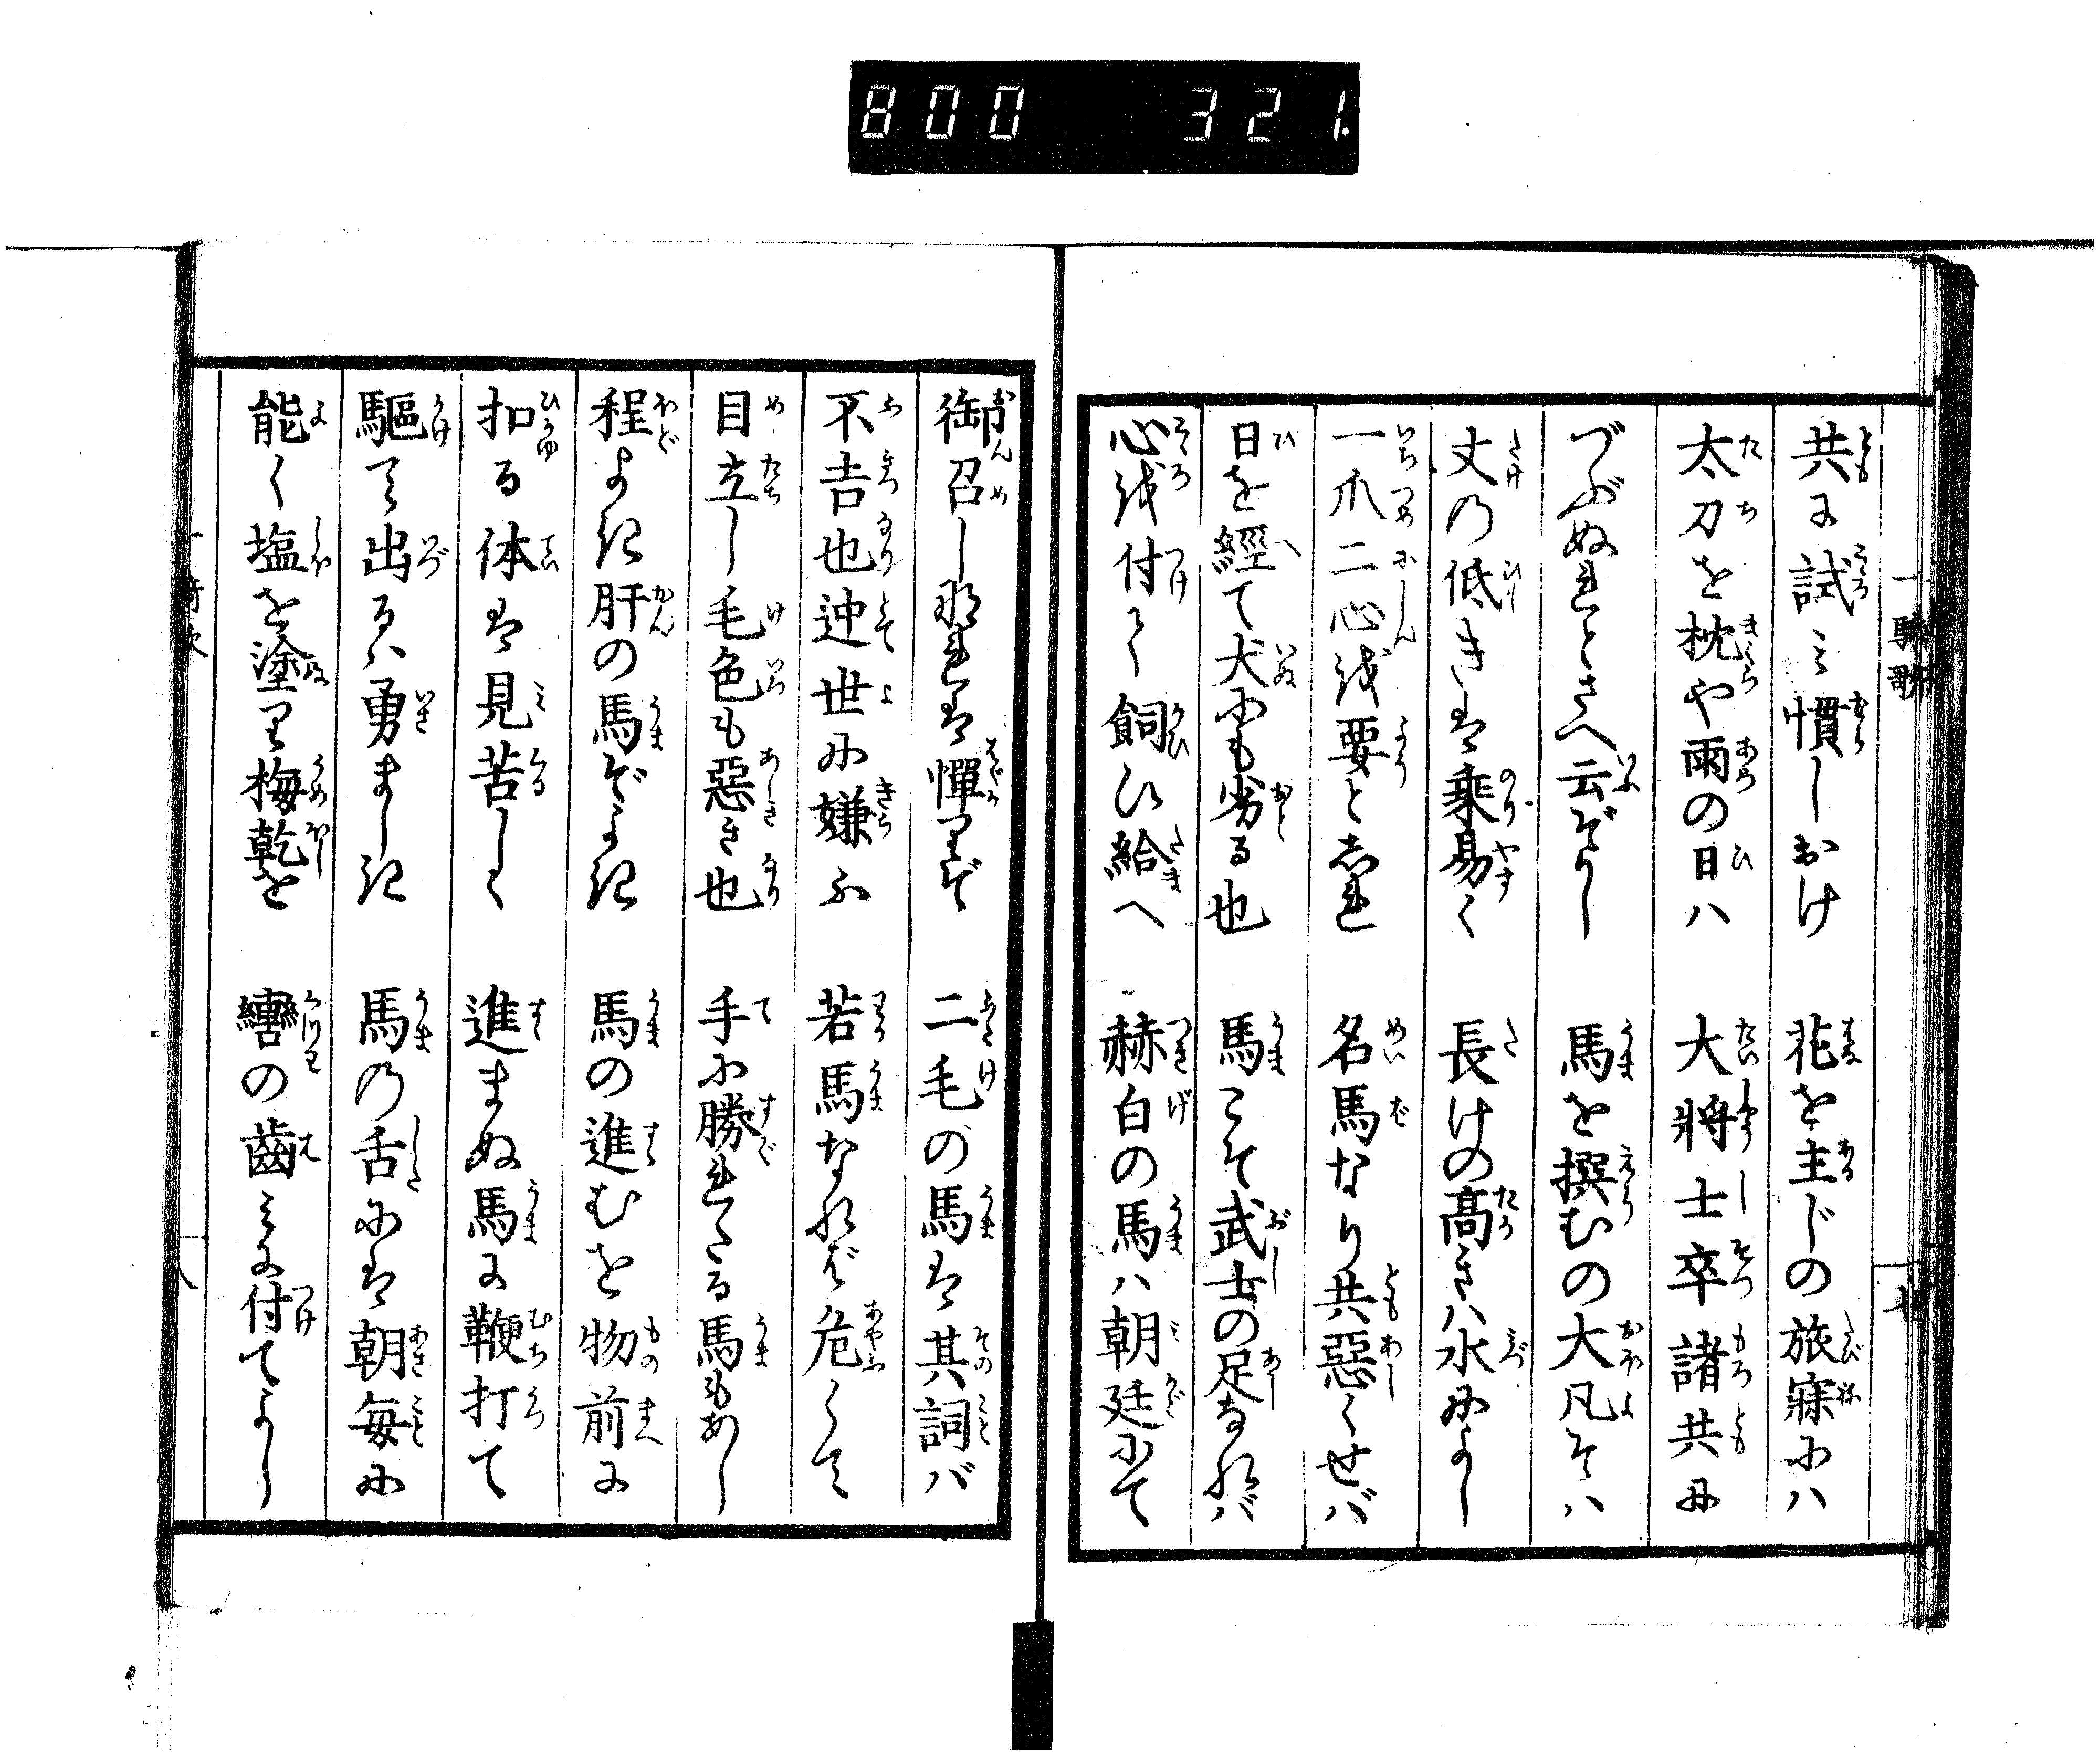 800 321.
一騎歌
共に試ミ慣しおけ 花を主じの旅寐にハ
太刀を枕や雨の日ハ 大將士卒諸共に
づぶぬれとさへ云ぞかし 馬を撰むの大凡そハ
丈の低きは乘易く 長けの髙きハ水によし
一爪二心を要と志れ 名馬なり共惡くせバ
日を經て犬にも劣る也 馬こそ武士の足なれバ
心を付て飼ひ給へ 赫白の馬ハ朝廷にて
御召し那れは憚りぞ 二毛の馬は其詞バ
不吉也迚世に嫌ふ 若馬なれば危くて
目立し毛色も惡き也 手に勝れたる馬もあし
程よき肝の馬ぞよき 馬の進むを物前に
扣る体は見苦しく 進まぬ馬に鞭打て
驅て出るハ勇ましき 馬の舌には朝毎に
能く塩を塗り梅乾を 轡の齒みに付てよし